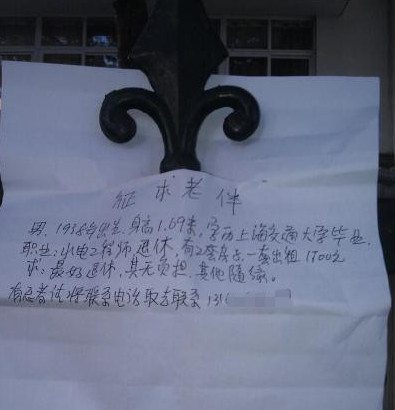 征求老伴
男，1938年出生，身高1.69米，学历上海交通大学毕业，
职业：水电工程师退休，有2套房子，一套出租1700元
求：最好退休，其无负担，其他随缘。
有忍者请将联系电话取去联系 131